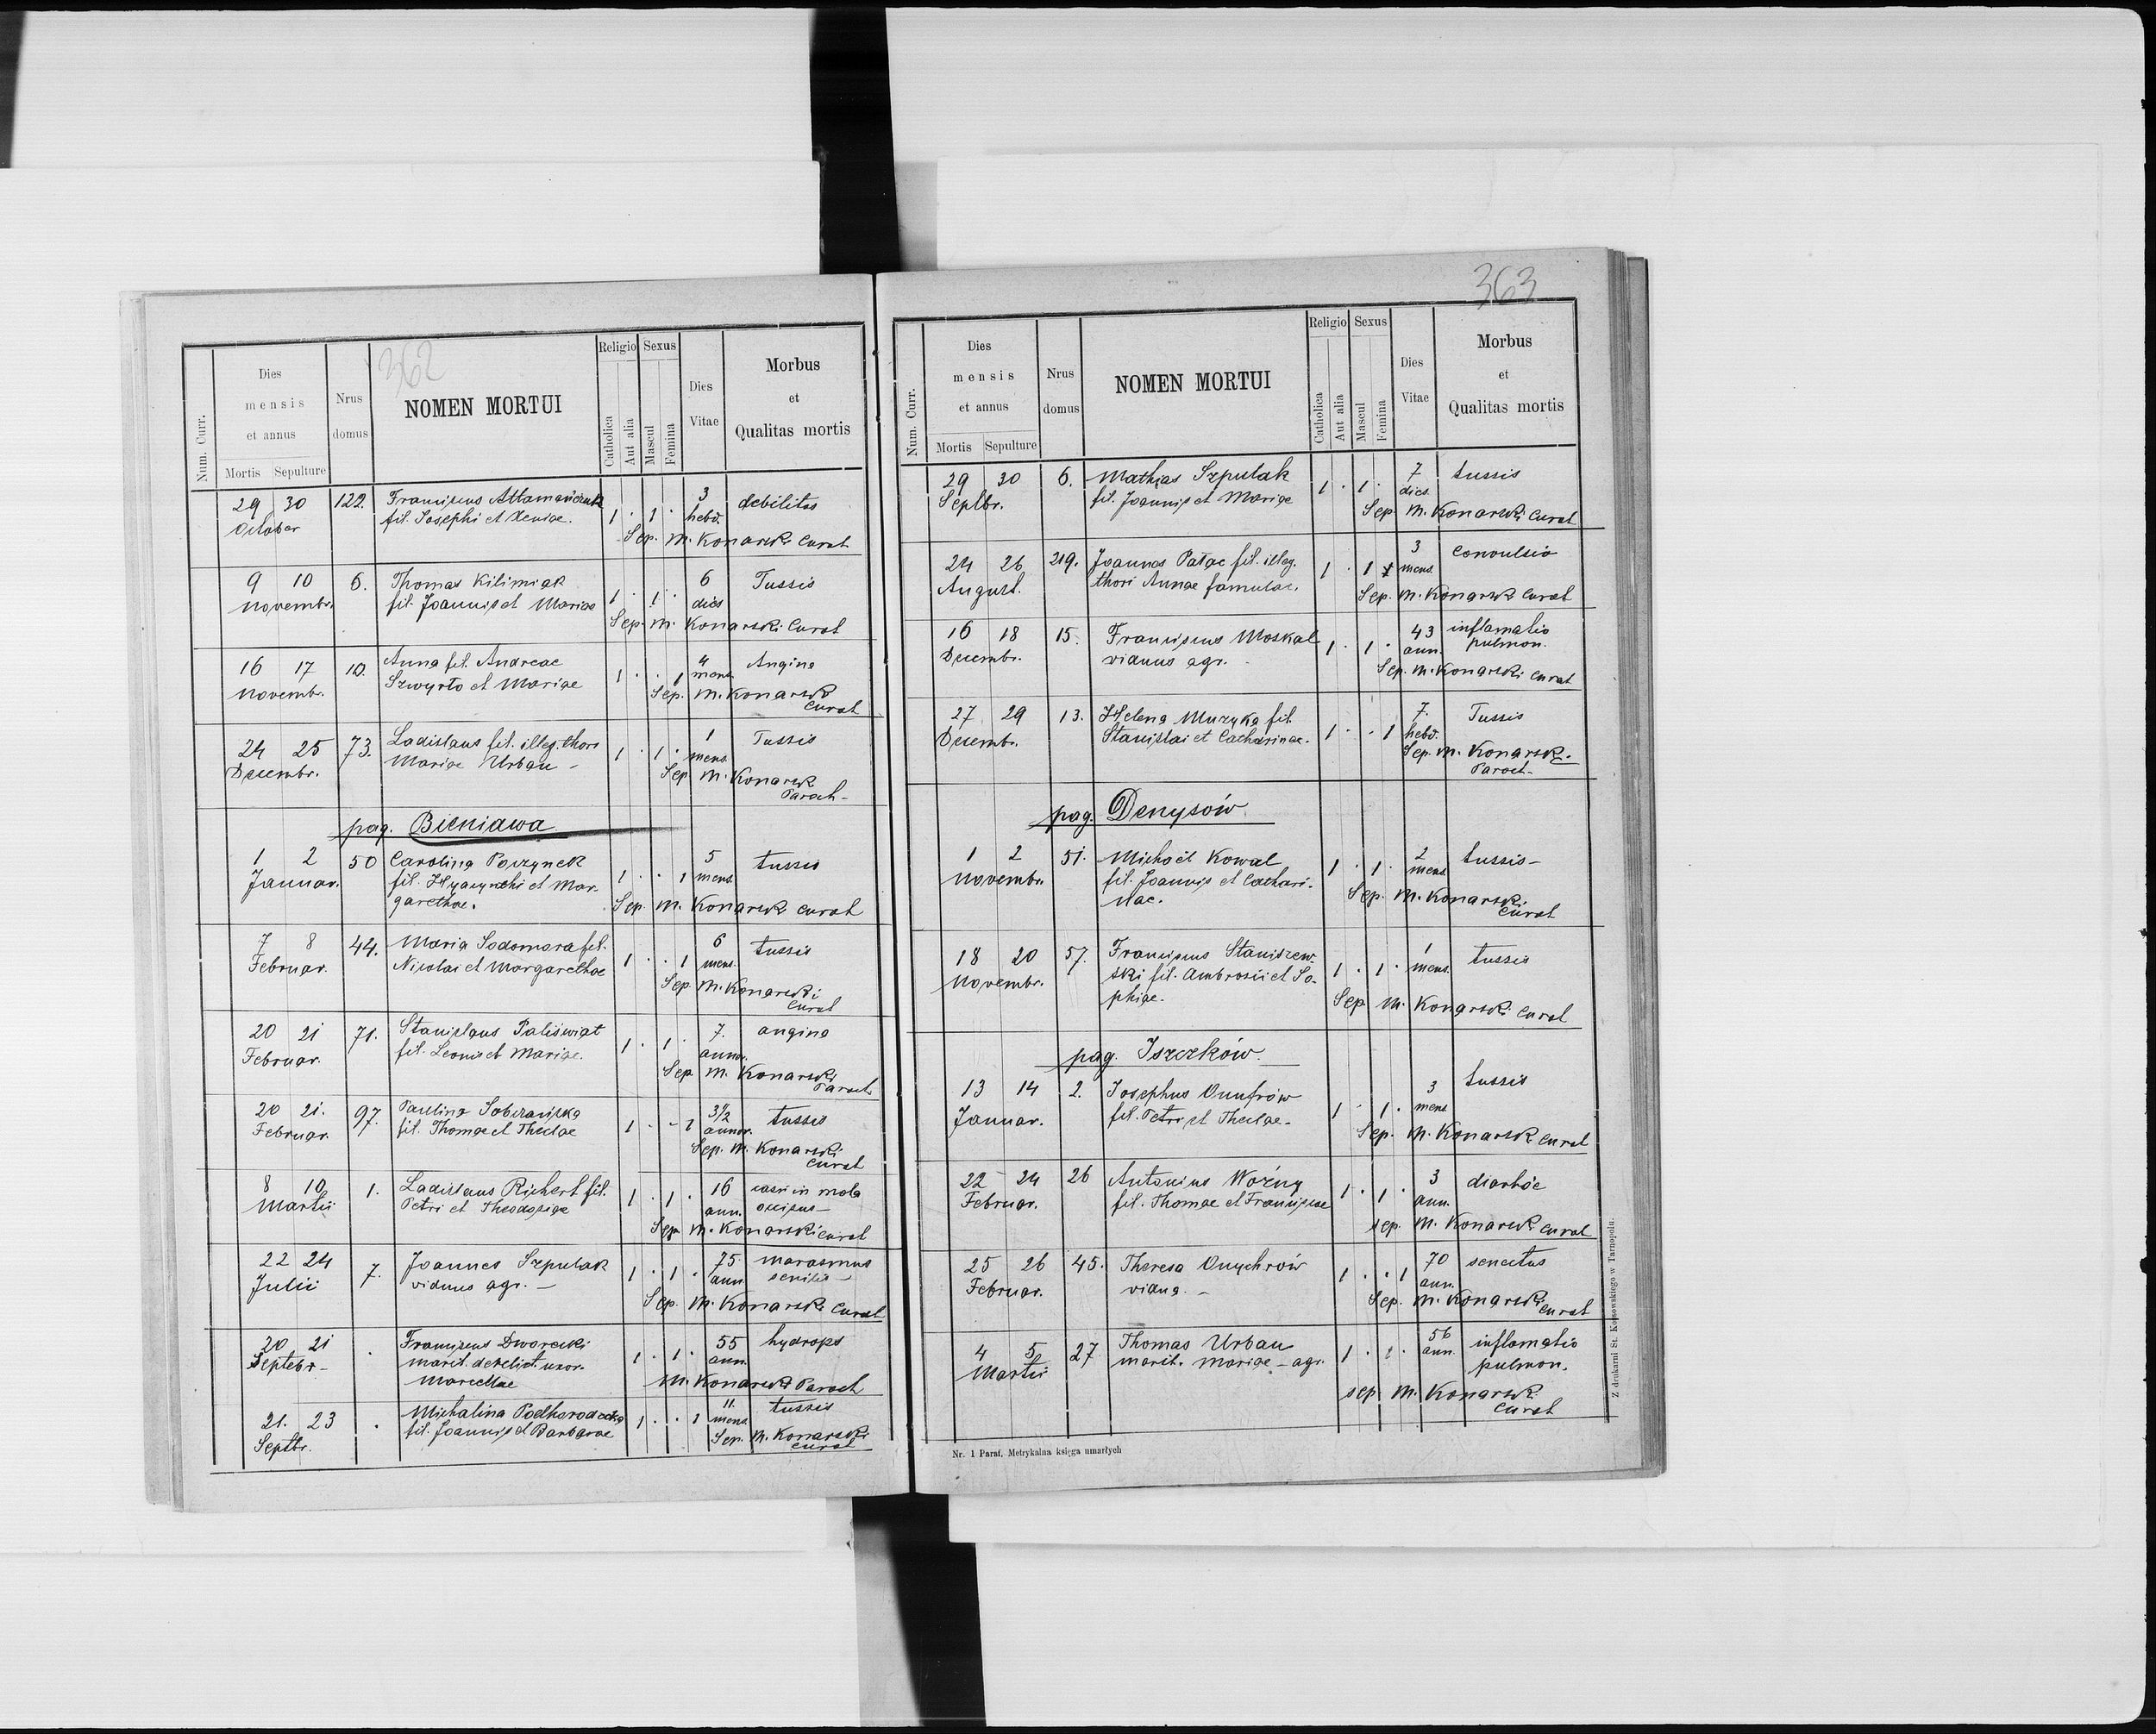 362
Num. Curr.
Dies
mensis
et annus
Mortis Sepulture
Nrus
domus
NOMEN MORTUI
Religio
Catholica
Aut alia
Sexus
Mascul
Femina
Dies
Vitae
Morbus
et
Qualitas mortis
29 30 122. Franciscus Attamańczuk 3 debilitas
October fil. Josephi et Xeniae. 1 . 1 . hebd.
Sep. M. Konarski Curat
9 10 6. Thomas Kilimiak 6 Tussis
Novembr. fil. Joannis et Mariae 1 . 1 . dies
Sep. M. Konarski Curat
16 17 10. Anna fil. Andreae 4 Angina
Novembr. Szwyrło et Mariae 1 . . 1 mens.
Sep. M. Konarski
Curat
24 25 73. Ladislaus fil. illeg. thori 1 Tussis
Decembr. Mariae Urban - 1 . 1 . mens.
Sep M. Konarsk
Paroch-
pag. Bieniawa
1 2 50 Carolina Poczynek 5 tussis
Januar. fil. Hyacynthi et Mar- 1 . . 1 mens.
garethae. Sep. M. Konarsk Curat
7 8 44. Maria Sodomora fil. 6 tussis
Februar. Nicolai et Margarethae 1 . . 1 mens.
Sep M. Konarski
Curat
20 21 71. Stanislaus Paliświat 7. angina
Februar. fil. Leonis et Mariae. 1 . 1 . annor.
Sep M. Konarski
Paroch
20 21. 97. Paulina Sobczańska 3 1/2 tussis
Februar. fil. Thomae et Theclae 1 . - 1 annor.
Sep. M. Konarski
Curat
8 10 1. Ladislaus Richert fil. 16 casu in mola
Martii Petri et Theodosiae 1 . 1 . ann. occisus-
Sep. M. Konarski Curat
22 24 7. Joannes Szpulak 75 marasmus
Julii viduus agr. - 1 . 1 . ann. senilis -
Sep. M. Konarski Curat
20 21 . Franciscus Dworecki 55 hydrops
Septebr- marit. derelict. uxor. 1 . 1 . ann.
Marcellae M. Konarski Paroch
21. 23 . Michalina Podhorodecka 11. tussis
Septbr. fil. Joannis et Barbarae 1 . . 1 mens.
Sep. M. Konarski
Curat
363
Num. Curr.
Dies
mensis
et annus
Mortis Sepulture
Nrus
domus
NOMEN MORTUI
Religio
Catholica
Aut alia
Sexus
Mascul
Femina
Dies
Vitae
Morbus
et
Qualitas mortis
29 30 6. Mathias Szpulak 7 tussis
Septbr. fil. Joannis et Mariae 1 . 1 . dies
Sep M. Konarski Curat
24 26 219. Joannes Pałac fil. illeg. 3 convulsio
August. thori Annae famulae. 1 . 1 mens.
Sep. M. Konarsk Curat
16 18 15. Franciscus Moskal 43 inflamatio
Decembr. viduus agr. - 1 . 1 . ann. pulmon.
Sep. M. Konarski Curat
27 29 13. Helena Muzyka fil. 7. Tussis
Decembr. Stanislai et Catharinae. 1 . . 1 hebd.
Sep. M. Konarsk.
Paroch-
pag. Denysów
1 2 51. Michaël Kowal 2 tussis-
Novembr. fil. Joannis et Cathari- 1 . 1 . mens
nae. Sep. M. Konarski
Curat
18 20 57. Franciscus Staniszew- 1 tussis
Novembr. ski fil. Ambrosii et So- 1 . 1 . mens.
phiae. Sep M. Konarski Curat
pag. Iszczków
13 14 2. Josephus Onufrów 3 tussis
Januar. fil. Petri et Theclae - 1 . 1 . mens
Sep. M. Konarsk Curat
22 24 26 Antonius Woźny 3 diarhöe
Februar. fil. Thomae et Franciscae 1 . 1 . ann.
sep. M. Konarsk Curat
25 26 45. Theresa Onychrów 70 senectus
Februar. vidua. - 1 . . 1 ann.
Sep. M. Konarski Curat
4 5 27 Thomas Urban 56 inflamatio
Martii marit. Mariae - agr. 1 . 1 . ann. pulmon.
sep. M. Konarsk
Curat
Nr. 1 Paraf, Metrykalna księga umarłych
Z drukarni St. Kossowskiego w Tarnopolu.